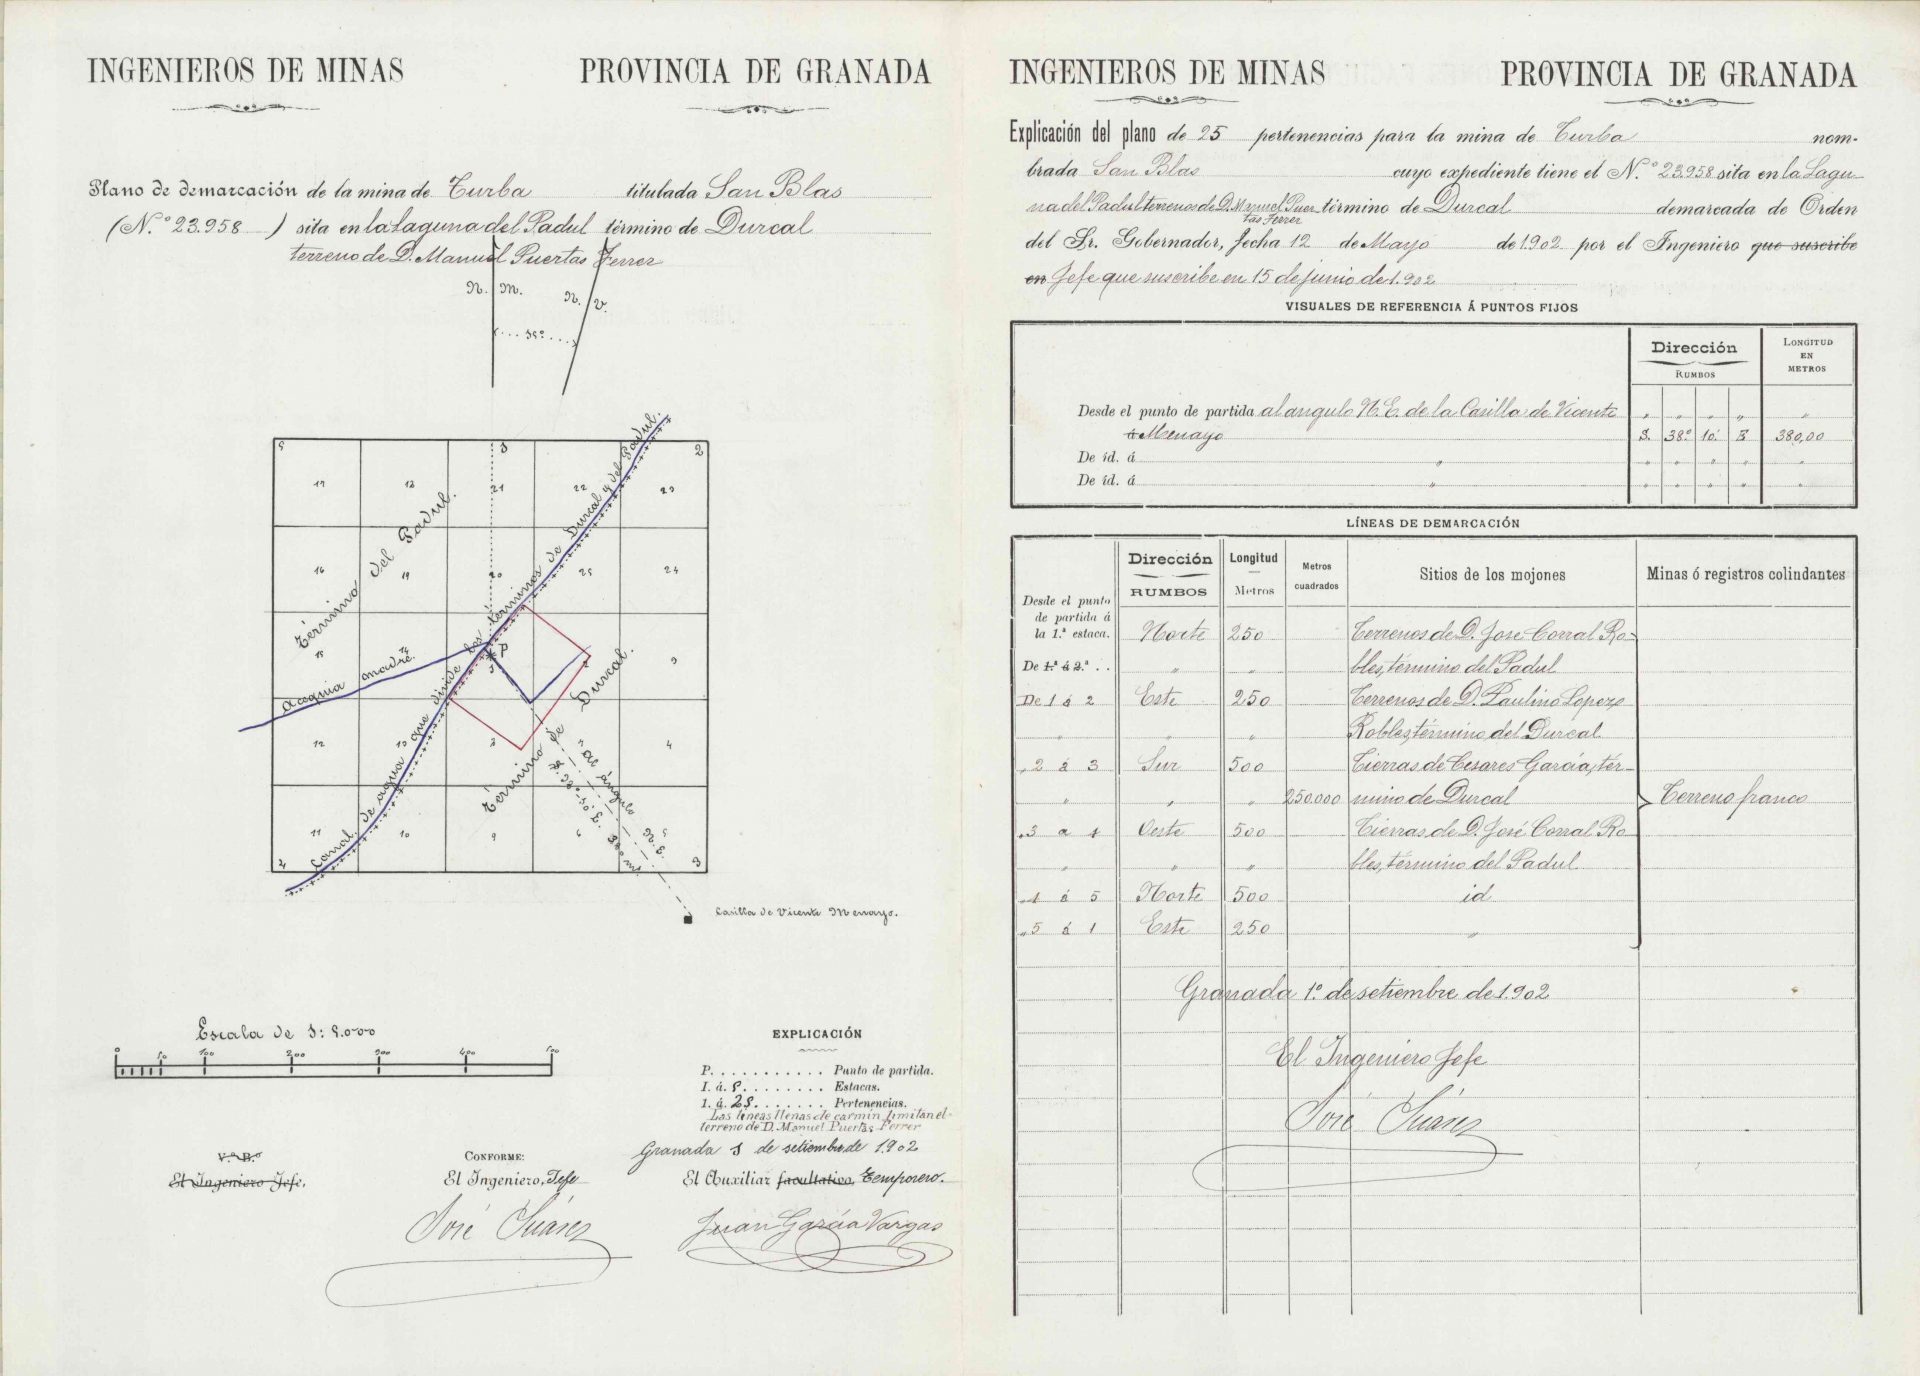 INGENIEROS DE MINAS PROVINCIA DE GRANADA
Plano de demarcación de la mina de Turba titulada San Blas
(N.º 23.958 ) sita en la Laguna del Padul término de Durcal
terreno de D. Manuel Puertas Ferrer
N. M. N. V.
15º
5 1 2
17 18 21 22 23
16 19 20 25 24
15 14 1 2 3
12 13 3 4
11 10 9 6 5
4 3
Término del Padul.
Canal de agua que divide los términos de Durcal y del Padul.
Acequia madre.
P
Término de Durcal.
al ángulo N.E.
S. 38º-10' E. 380 m/.
Casilla de Vicente Menayo.
Escala de 1: 5.000
0 50 100 200 300 400 500
EXPLICACIÓN
P. . . . . . . . . . . Punto de partida.
I. á. 5. . . . . . . . Estacas.
1. á. 25. . . . . . . Pertenencias.
Las líneas llenas de carmín limitan el
terreno de D. Manuel Puertas Ferrer
Granada 1 de setiembre de 1.902
V.º B.º
El Ingeniero Jefe.
CONFORME:
El Ingeniero, Jefe
El Auxiliar facultativo, Temporero.
José Suárez
Juan García Vargas
INGENIEROS DE MINAS PROVINCIA DE GRANADA
Explicación del plano de 25 pertenencias para la mina de Turba nom-
brada San Blas cuyo expediente tiene el N.º 23.958 sita en la Lagu-
na del Padul terrenos de D. Manuel Puer término de Durcal demarcada de Orden
tas Ferrer
del Sr. Gobernador, fecha 12 de Mayo de 1.902 por el Ingeniero que suscribe
en Jefe que suscribe en 15 de junio de 1.902
VISUALES DE REFERENCIA Á PUNTOS FIJOS
Dirección
RUMBOS
LONGITUD
EN
METROS
Desde el punto de partida al angulo N.E. de la Casilla de Vicente " " " " "
á Menayo S. 38º 10' E 380,00
De id. á " " " " " "
De id. á " " " " " "
LÍNEAS DE DEMARCACIÓN
Dirección
RUMBOS
Longitud
Metros
Metros
cuadrados
Sitios de los mojones
Minas ó registros colindantes
Desde el punto
de partida á
la 1.ª estaca. Norte 250 Terrenos de D. José Corral Ro-
De 1.ª á 2.ª . . " " bles, término del Padul
De 1 á 2 Este 250 Terrenos de D. Paulino Lopez
" " " Robles, término del Durcal
" 2 á 3 Sur 500 Tierras de Cesares García, tér-
" " " 250.000 mino de Durcal Terreno franco
" 3 a 4 Oeste 500 Tierras de D. José Corral Ro
" " " bles, término del Padul
" 4 á 5 Norte 500 id
" 5 á 1 Este 250 "
Granada 1º de setiembre de 1.902
El Ingeniero Jefe
José Suárez